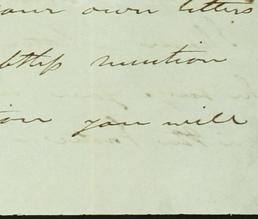 your own letters
btless mention
ion you will